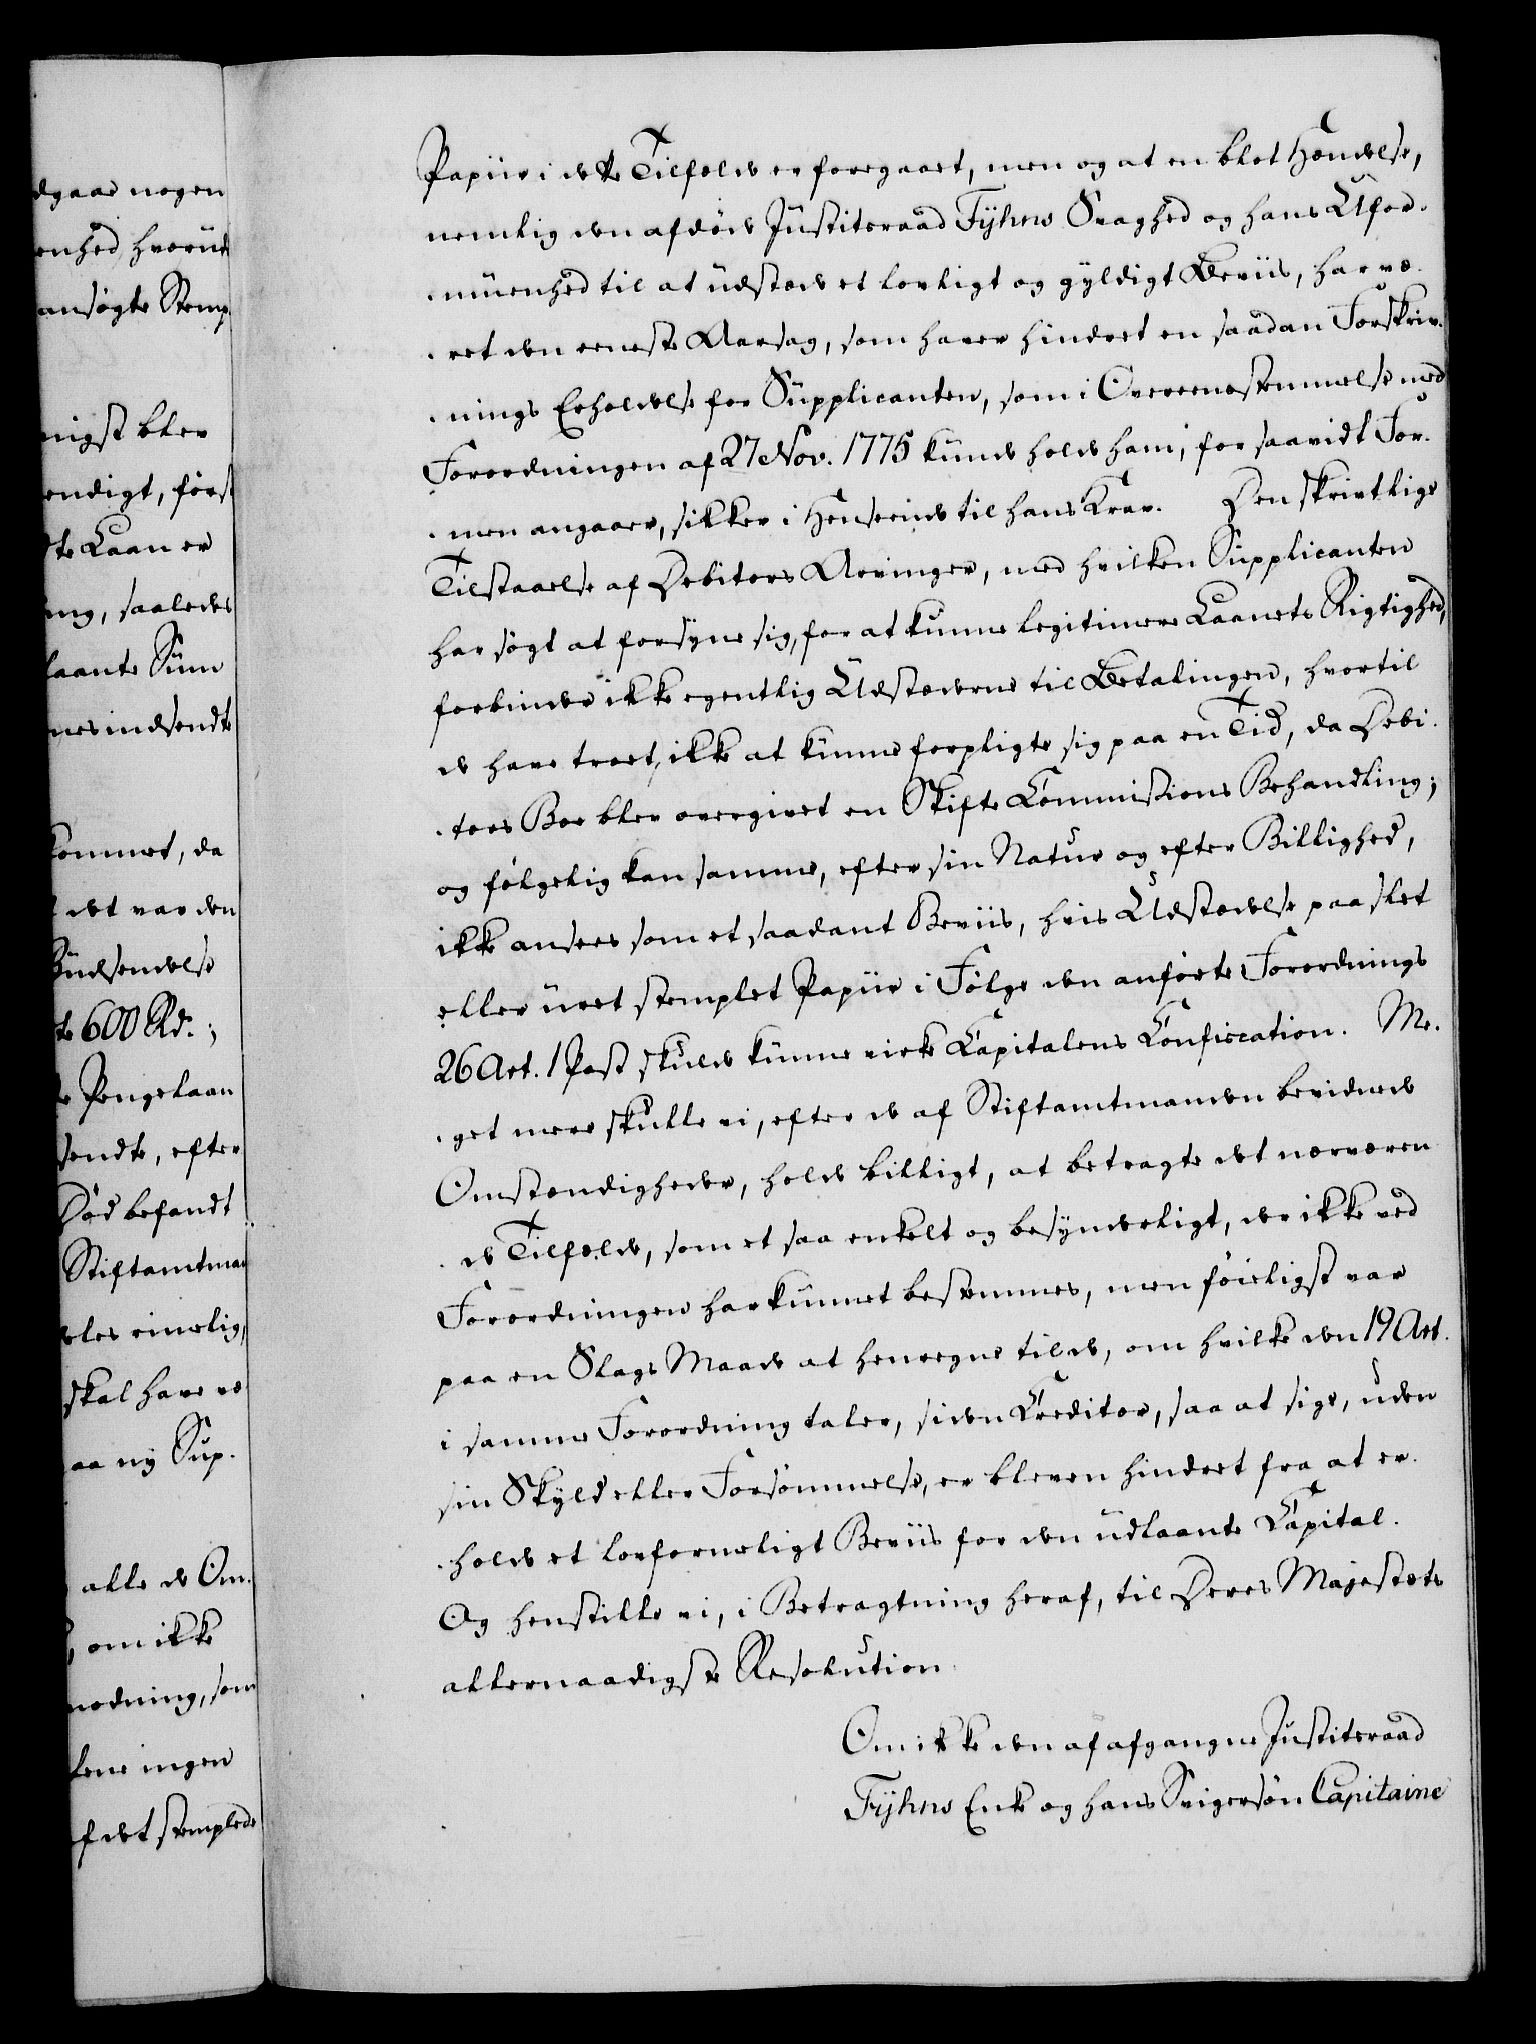 dgaae nogen
enhed, hvorud
ansøgte Stemp
nigst blev
endigt, først
te Laan er
ing, saaledes
laante Sum
nes indsendte
kommet, da
det var den
Büdsendelse
te 600 Rd.;
e Pengelaan
sendte, efter
Død befandt
Stiftamtman
eles rimelig,
skal have væ
aa ny Sup.
alle de Om.
, om ikke
modning, som
lene ingen
f det stemplede
Papiir i dette Tilfelde er foregaaet, men og at en blot Hændelse,
nemlig den afdøde Justiteraad Fyhns Svaghed og hans Ufor.
.muenhed til at udstæde et lovligt og gyldigt Beviis, har væ.
.ret den eeneste Aarsag, som haver hindret en saadan Forskriv.
.nings Erholdelse for Supplicanten, som i Overeensstemmelse med
Forordningen af 27 Nov. 1775 kunde holde ham, for saavidt For.
.men angaaer, sikker i Henseende til hans Krav. Den skrivtlige
Tilstaaelse af Debitors Arvinger, med hvilken Supplicanten
har søgt at forsyne sig, for at kunne legitimere Laanets Rigtighed,
forbinder ikke egentlig Udstæderne til Betalingen, hvortil
de have troet, ikke at kunne forpligte sig paa en Tid, da Debi.
.tors Boe blev overgivet en Skifte Commissions Behandling;
og følgelig kan samme, efter sin Natur og efter Billighed,
ikke ansees som et saadant Beviis, hvis Udstædelse paa slet
eller uret stemplet Papiir i Følge den anførte Forordnings
26 Art. 1 Post skulde kunne virke Capitalens Confiscation. Me.
.get mere skulle vi, efter de af Stiftamtmanden bevidnede
Omstændigheder, holde billigt, at betragte det nærværen
.de Tilfælde, som et saa enkelt og besynderligt, der ikke ved
Forordningen har kunnet bestemmes, men føieligst var
paa en Slags Maade at henregne til de, om hvilke den 19 Art.
i samme Forordning taler, siden Creditor, saa at sige, uden
sin Skyld eller Forsømmelse, er bleven hindret fra at er.
.holde et lovformeligt Beviis for den udlaante Capital.
Og henstille vi, i Betragtning heraf, til Deres Majestæts
allernaadigste Resolution.
Om ikke den af afgangne Justiteraad
Fyhns Enke og hans Svigersøn Capitaine